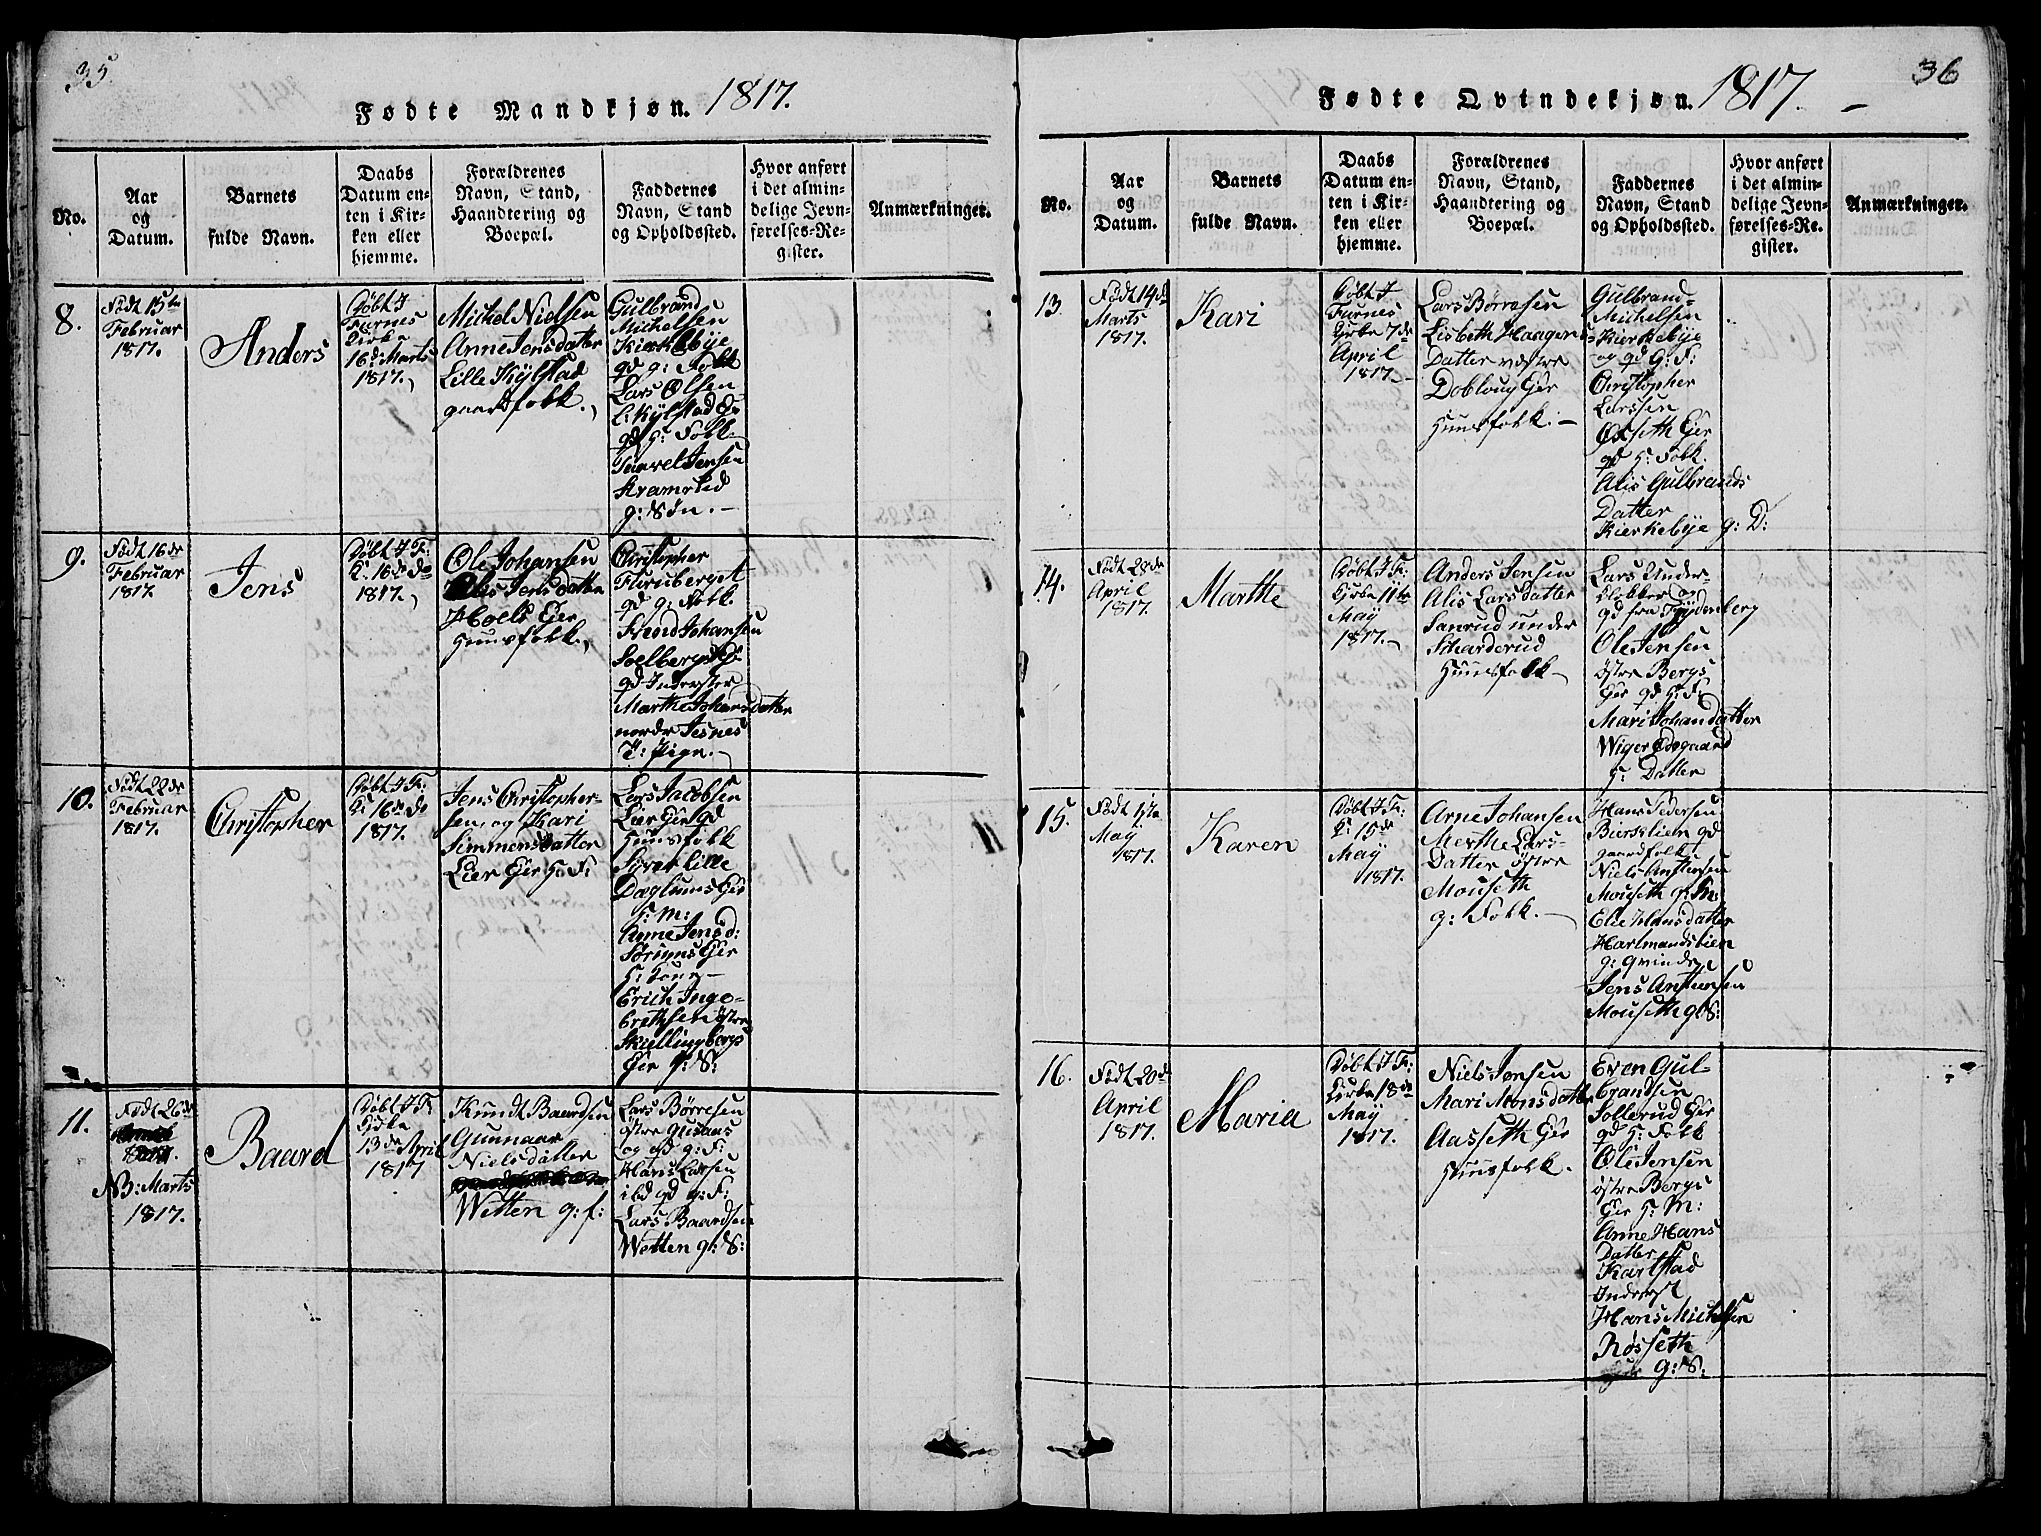 35
Fødte Mandkjøn. 1817.
No.
Aar
og
Datum.
Barnets
fulde Navn.
Daabs
Datum en-
ten i Kir-
ken eller
hjemme.
Forældrenes
Navn, Stand,
Haandtering og
Boepæl.
Faddernes
Navn, Stand
og Opholdssted.
Hvor anført
i det almin-
delige Jevn-
førelses-Re-
gister.
Anmærkninger.
8.
Født 15de
Februar
1817.
Anders
Døbt I
Furnes
Kirke
16de Marts
1817.
Michel Nielsen
Anne Jensdatter
Lille Kylstad
gaardfolk.
Gulbrand
Michelsen
Kirkebye
gd g: Folk
Lars Olsen
L: Kylstad
gd H: Folk
Jensen
Kramstad
g: Søn.
9.
Født 16de
Februar
1817.
Jens
Døbt I F:
K: 16de do
1817.
Ole Johansen
Jensdatter
Hoels Eier
Huusfolk.
Christopher
Floruberget
gd g: Folk.
Johansen
Soelberg
gd Inderster
Marthe Johansdatter
nordre Jesnes
T: Pige.
10.
Født 28de
Februar
1817.
Christopher
Døbt I F:
K: 16de do
1817.
Jens Christopher-
sen, og Kari
Simmensdatter
Lier Eier H: F:
Lars Jacobsen
Lier Eier gd
Huusfolk
Siver Lille
Daglums Eier
H: M:
Anne Jens d:
Sørums Eier
H: Kone
Erich Inge-
brethsen østre
Skiellingbergs
Eier H: S:
11.
Født 26de
NB: Marts
1817.
Baard
Døbt I F
Kirke
13de April
1817
Knudt Baardsen
Gunnaar
Nielsdatter
Wetten g: f:
Lars Børresen
østre
og g: F:
Hans Larsen
ild gd g: F:
Lars Baardsen
Wetten g: S:
36
Fødte Qvindekjøn. 1817.
No.
Aar
og
Datum.
Barnets
fulde Navn.
Daabs
Datum en-
ten i Kir-
ken eller
hjemme.
Forældrenes
Navn, Stand,
Haandtering og
Boepæl.
Faddernes
Navn, Stand
og Opholdssted.
Hvor anført
i det almin-
delige Jevn-
førelses-Re-
gister.
Anmærkninger.
13.
Født 14de
Marts
1817.
Kari
Døbt I
Furnes
Kirke 7de
April
1817.
Lars Børresen
Lisbeth Haagens
Datter vestre
Dobloug Eier
Huusfolk.
Gulbrand
Michelsen
Kierkebye
og gd G: F:
Christopher
Larssen
Øxseth Eier
gd H: Folk.
Alis Gulbrands
Datter
Kierkebye g: D:
14.
Født 28de
April
1817.
Marthe
Døbt I F:
Kirke 11te
May
1817.
Anders Jensen
Alis Larsdatter
Sanrud under
Scharderud
Huusfolk
Lars Under-
klokker og
gd fra Frydenberg
Ole Jensen
østre Bergs
Eier gd H: F:
Mari Johandatter
Wiger Ødegaard
H: Datter
15.
Født 1ste
May
1817.
Karen
Døbt I F:
K: 15de
May
1817.
Arne Johansen
Merthe Lars-
Datter østre
Mouseth
g: Folk.
Hans Pedersen
Bierslien gd
gaardfolk
Niels Anstensen
Mouseth g: M:
Elie Hansdatter
Harlmandslien
g: Qvinde
Jens Anstensen
Mouseth g: S:
16.
Født 20de
April
1817.
Maria
Døbt I F:
Kirke 18de
May
1817.
Niels Jensen
Mari Monsdatter
Aasseth Eier
Huusfolk.
Even Gul-
brandsen
Sollerud Eier
gd H: Folk
Ole Jensen
østre Bergs
Eier H: M:
Anne Hans
Datter
Karlstad
Inderst
Hans Michelsen
Røsseth
g: S: